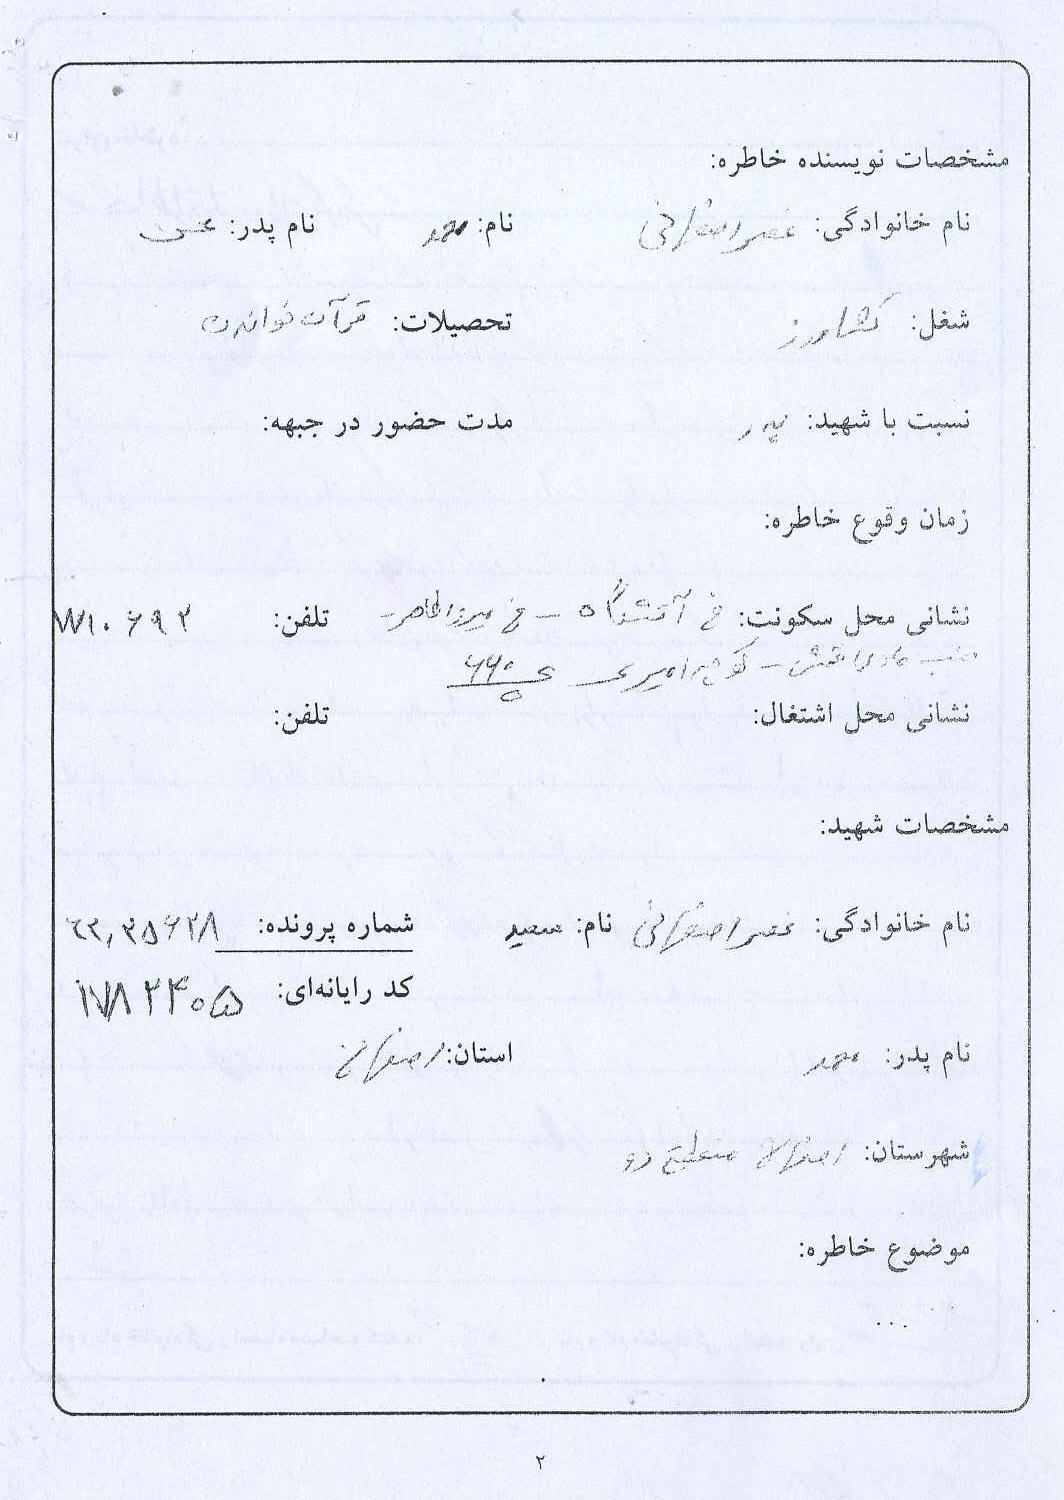 مشخصات نویسنده خاطره:
نام خانوادگی: عصر اصفهانی نام: محمد نام پدر: حسن
شغل: کشاورز تحصیلات: قرآن خواندن
نسبت با شهید: پدر مدت حضور در جبهه:
زمان وقوع خاطره:
نشانی محل سکونت: خ آتشگاه - خ میرزا طاهر - تلفن: ۷۷۱۰۶۹۲
جنب - کوچه امیری
نشانی محل اشتغال: تلفن:
مشخصات شهید:
نام خانوادگی: عصر اصفهانی نام: سعید شماره پرونده:
کد رایانه‌ای: ۱۷۸۲۴۰۵
نام پدر: محمد استان: اصفهان
شهرستان: اصفهان منطقه دو
موضوع خاطره:
...
۲